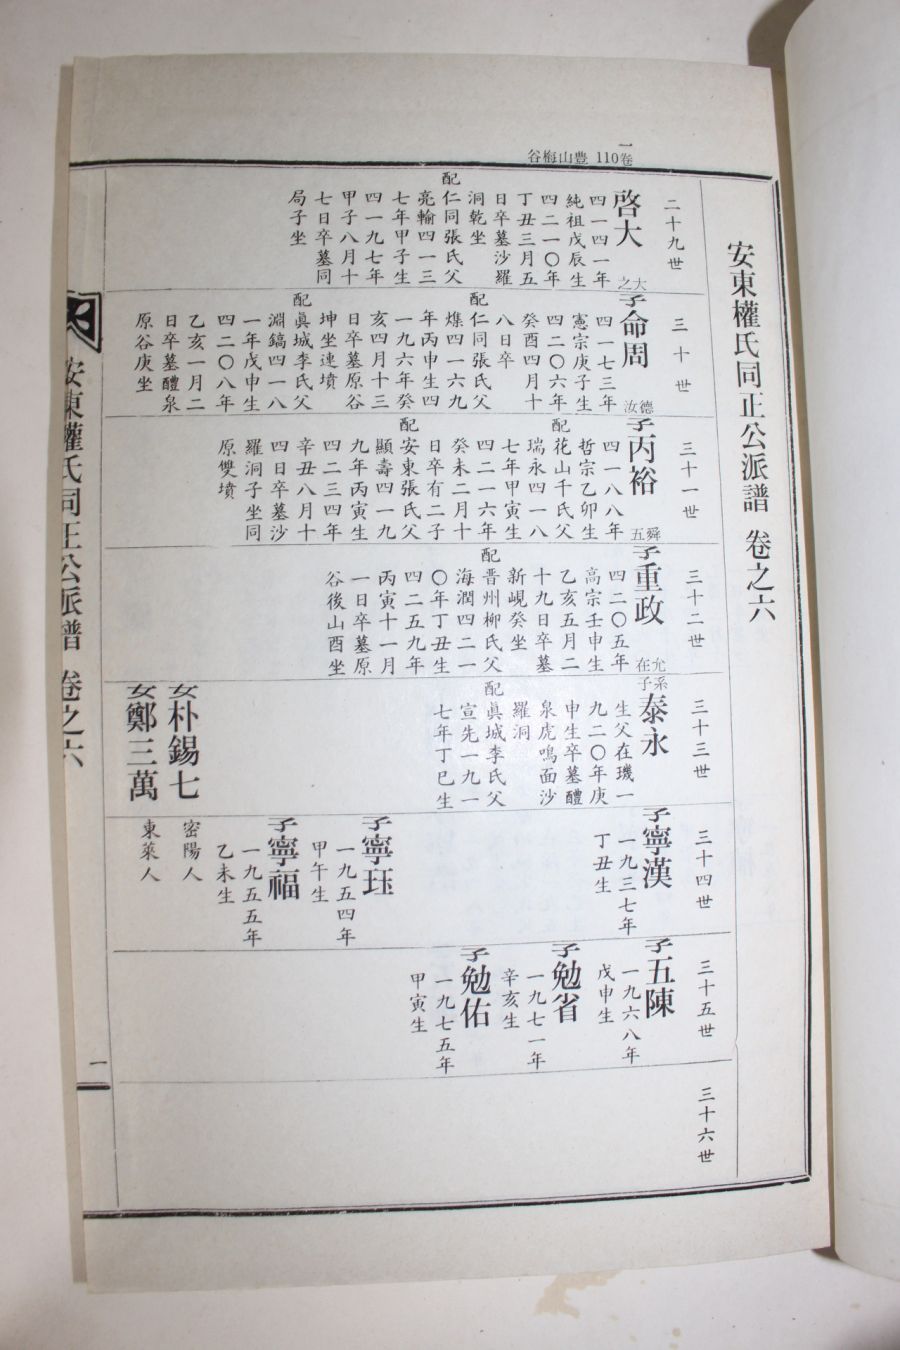 一卷110 豊山梅谷
安東權氏同正公派譜 卷之六
二十九世
啓大
四一四一年
純祖戊辰生
四二一〇年
丁丑三月五
日卒墓沙羅
洞乾坐
配仁同張氏父
亮輸四一三
七年甲子生
四一九七年
甲子八月十
七日卒墓同
局子坐
三十世
大之
子命周
四一七三年
憲宗庚子生
四二〇六年
癸酉四月十
八日卒
配仁同張氏父
㷮四一六九
年丙申生四
一九六年癸
亥四月十三
日卒墓原谷
坤坐連墳
配眞城李氏父
淵鎬四一八
一年戊申生
四二〇八年
乙亥一月二
日卒墓醴泉
原谷庚坐
三十一世
德汝
子丙裕
四一八八年
哲宗乙卯生
配花山千氏父
瑞永四一八
七年甲寅生
四二一六年
癸未二月十
日卒有二子
配安東張氏父
顯壽四一九
九年丙寅生
四二三四年
辛丑八月十
四日卒墓沙
羅洞子坐同
原雙墳
三十二世
舜五
子重政
四二〇五年
高宗壬申生
乙亥五月二
十九日卒墓
新峴癸坐
配晋州柳氏父
海潤四二一
〇年丁丑生
四二五九年
丙寅十一月
一日卒墓原
谷後山酉坐
三十三世
允在
系子泰永
生父在璣一
九二〇年庚
申生卒墓醴
泉虎鳴面沙
羅洞
配眞城李氏父
宣先一九一
七年丁巳生
女朴錫七
密陽人
女鄭三萬
東萊人
三十四世
子寧漢
一九三七年
丁丑生
子寧珏
一九五四年
甲午生
子寧福
一九五五年
乙未生
三十五世
子五陳
一九六八年
戊申生
子勉省
一九七一年
辛亥生
子勉佑
一九七五年
甲寅生
三十六世
安東權氏同正公派譜 卷之六
一